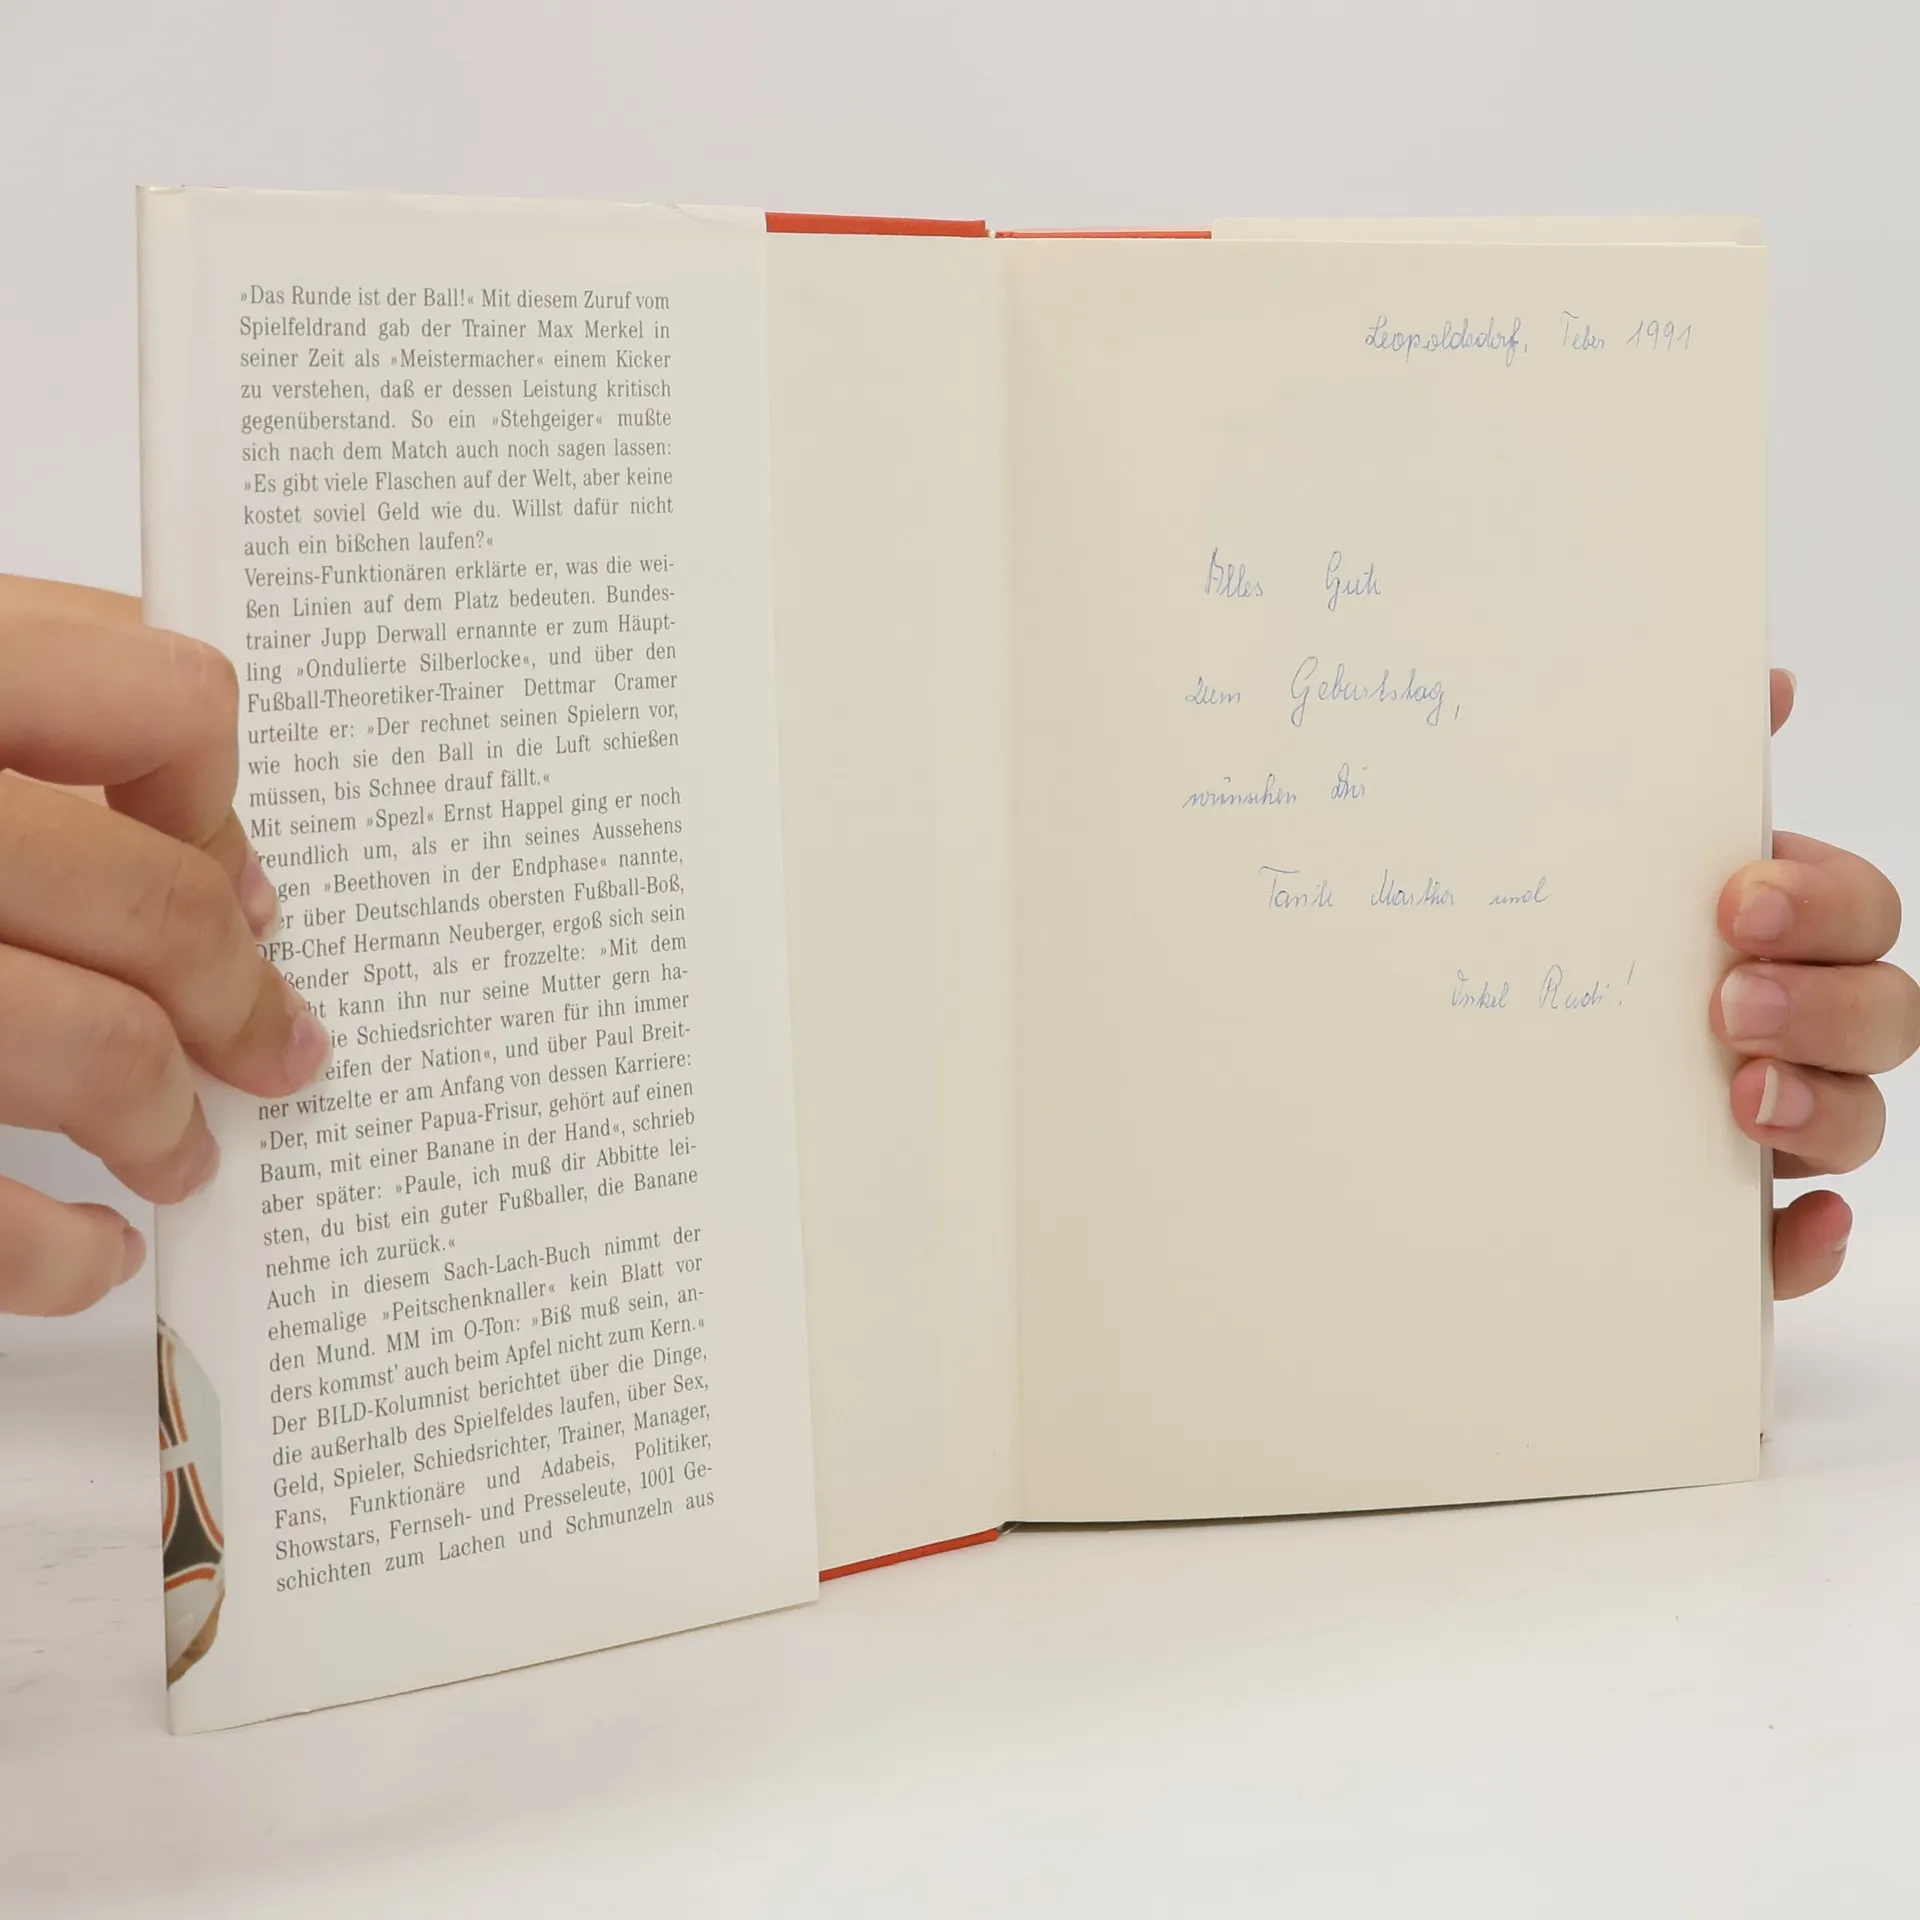 »Das Runde ist der Ball!« Mit diesem Zuruf vom
Spielfeldrand gab der Trainer Max Merkel in
seiner Zeit als »Meistermacher« einem Kicker
zu verstehen, daß er dessen Leistung kritisch
gegenüberstand. So ein »Stehgeiger« mußte
sich nach dem Match auch noch sagen lassen:
»Es gibt viele Flaschen auf der Welt, aber keine
kostet soviel Geld wie du. Willst dafür nicht
auch ein bißchen laufen?«
Vereins-Funktionären erklärte er, was die wei-
ßen Linien auf dem Platz bedeuten. Bundes-
trainer Jupp Derwall ernannte er zum Häupt-
ling »Ondulierte Silberlocke«, und über den
Fußball-Theoretiker-Trainer Dettmar Cramer
urteilte er: »Der rechnet seinen Spielern vor,
wie hoch sie den Ball in die Luft schießen
müssen, bis Schnee drauf fällt.«
Mit seinem »Spezl« Ernst Happel ging er noch
freundlich um, als er ihn seines Aussehens
gen »Beethoven in der Endphase« nannte,
er über Deutschlands obersten Fußball-Boß,
DFB-Chef Hermann Neuberger, ergoß sich sein
ßender Spott, als er frozzelte: »Mit dem
ht kann ihn nur seine Mutter gern ha-
ie Schiedsrichter waren für ihn immer
eifen der Nation«, und über Paul Breit-
ner witzelte er am Anfang von dessen Karriere:
»Der, mit seiner Papua-Frisur, gehört auf einen
Baum, mit einer Banane in der Hand«, schrieb
aber später: »Paule, ich muß dir Abbitte lei-
sten, du bist ein guter Fußballer, die Banane
nehme ich zurück.«
Auch in diesem Sach-Lach-Buch nimmt der
ehemalige »Peitschenknaller« kein Blatt vor
den Mund. MM im O-Ton: »Biß muß sein, an-
ders kommst' auch beim Apfel nicht zum Kern.«
Der BILD-Kolumnist berichtet über die Dinge,
die außerhalb des Spielfeldes laufen, über Sex,
Geld, Spieler, Schiedsrichter, Trainer, Manager,
Fans, Funktionäre und Adabeis, Politiker,
Showstars, Fernseh- und Presseleute, 1001 Ge-
schichten zum Lachen und Schmunzeln aus
Leopoldsdorf, Feber 1991
Alles Gute
zum Geburtstag,
wünschen Dir
Tante Martha und
Onkel Rudi!